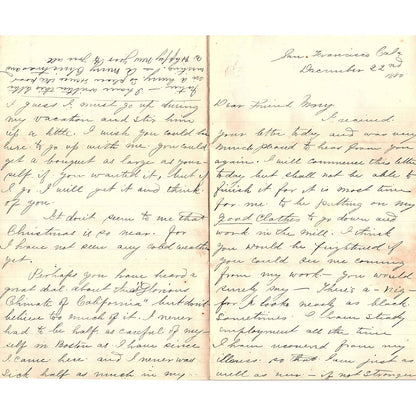 San Francisco Cala
December 22nd
Dear Friend Mary.
I received
your letter to day and was very
much pleased to hear from you
again. I will commence this letter
today but shall not be able to
finish it for it is most time
for me to be putting on my
Good Clothes to go down and
work in the mill. I think
you would be frightened if
you could see me coming
from my work – You would
surely say – There's a – Nig –
for I look nearly as black
sometimes. I have steady
employment all the time
I have recovered from my
illness. so that I am just as
well as ever – if not stronger
I guess I must go up during
my vacation and stir him
up a little. I wish you could be
here to go up with me you could
get a bouquet as large as your-
self if you wanted it, but if
I go I will get it and think
of you.
It don't seem to me that
Christmas is so near. for
I have not seen any cold weather
yet.
Perhaps you have heard a
great deal about the "Glorious
Climate of California" but don't
believe too much of it. I never
had to be half as careful of my-
self in Boston as I have since
I came here and I never was
sick half as much in my
I have written this letter
in a hurry so please excuse the poor
writing. A Merry Christmas and
a Happy New Year to you all